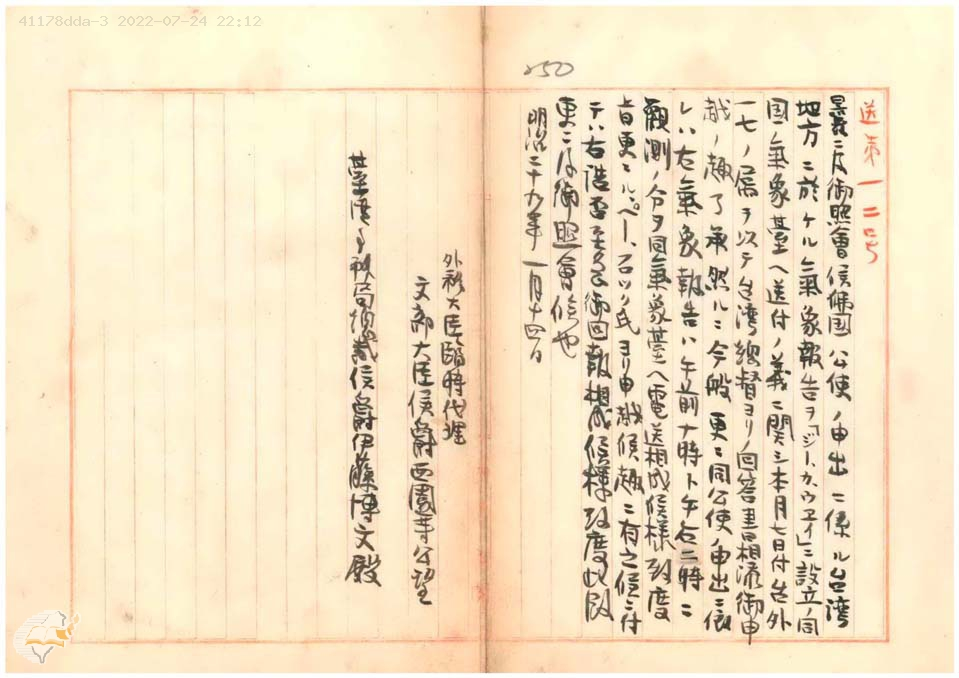 41178dda-3 2022-07-24 22:12
250
送第一二号
曩ニ及御照會候佛国公使ノ申出ニ係ル台湾
地方ニ於ケル氣象報告ヲ「ジーカウエイ」ニ設立ノ同
国氣象臺ヘ送付ノ義ニ関シ本月七日付台外
一七ノ属ヲ以テ台湾総督ヨリノ回答書相添御申
越ノ趣了承然ルニ今般更ニ同公使ノ申出ニ依
レハ右氣象報告ハ午前十時ト午后二時ニ
観測ノ分ヲ同氣象臺ヘ電送相成候様致度
旨更ニルペー、シェワリエ氏ヨリ申越候趣ニ有之候ニ付
テハ右諾否至急御回報相成候様致度此段
更ニ及御照會候也
明治二十九年一月十四日
外務大臣臨時代理
文部大臣侯爵西園寺公望
臺湾事務局総裁侯爵伊藤博文殿